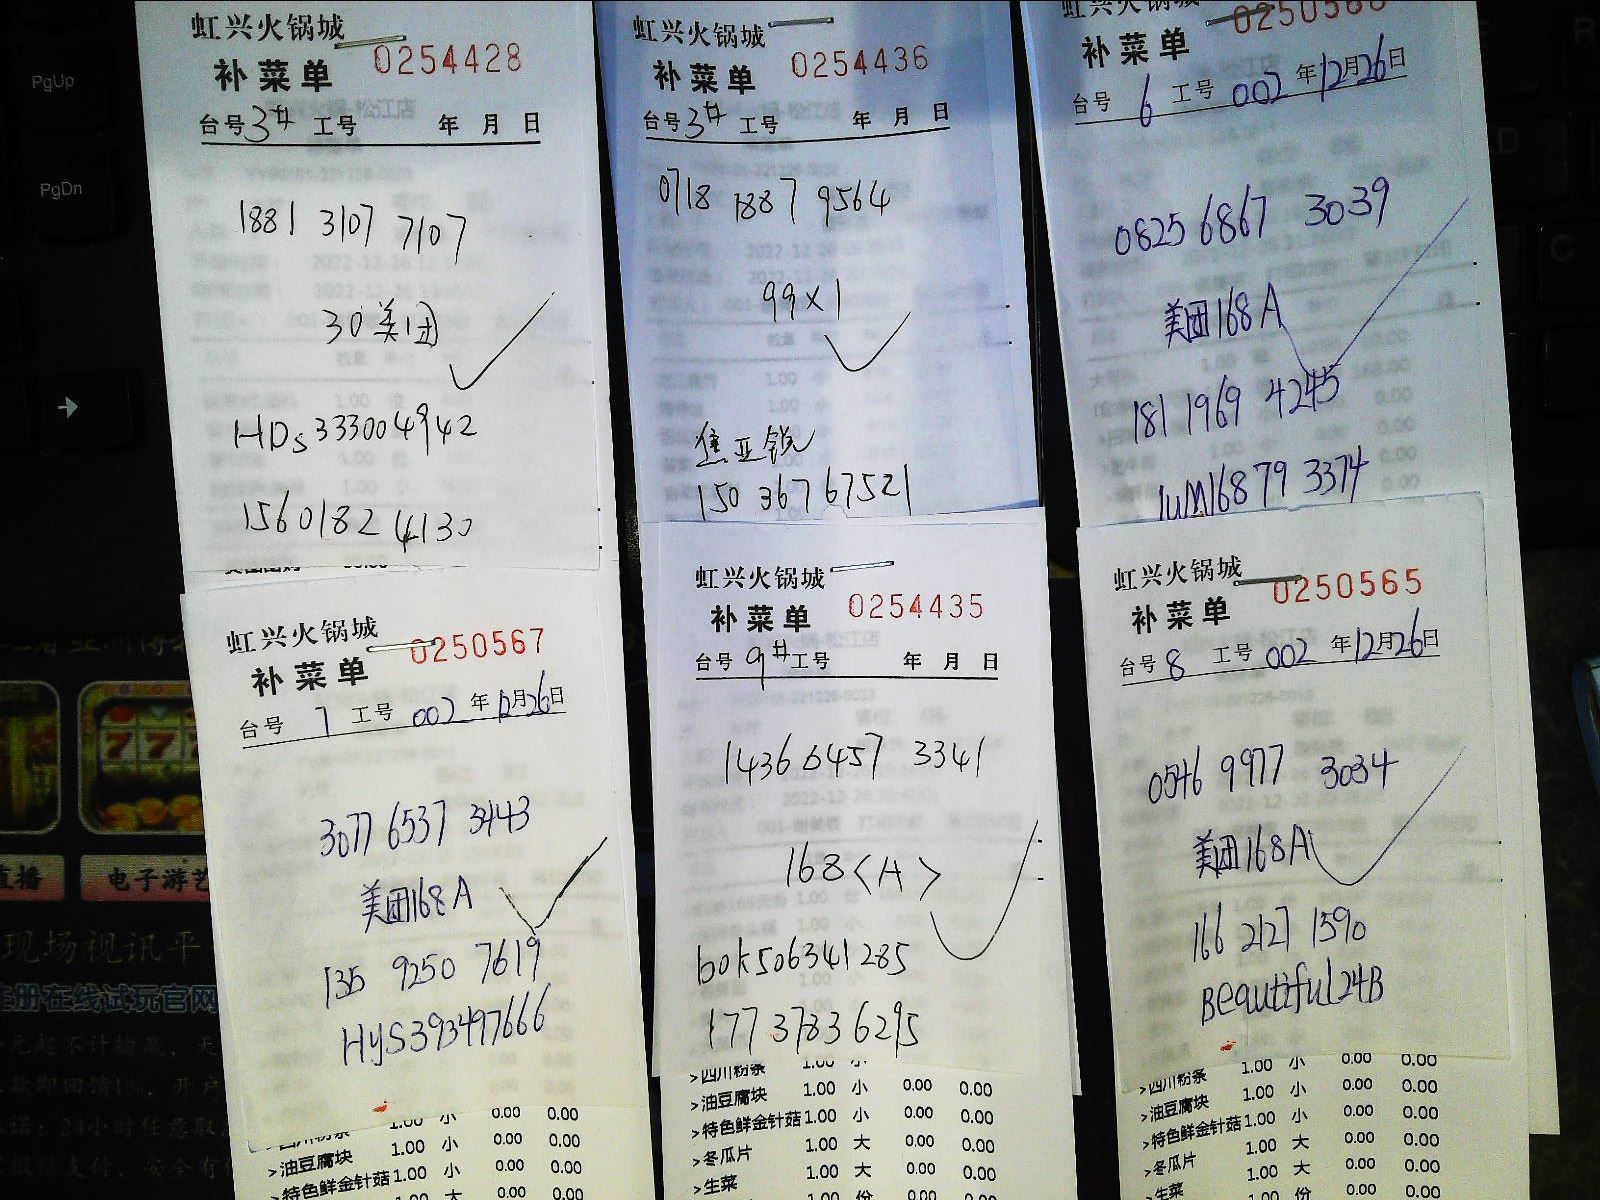 虹兴火锅城
补菜单 0254428
台号 3# 工号 年 月 日
1881 3107 7107
30美团
HDs333004942
15601824130
虹兴火锅城
补菜单 0254436
台号 3# 工号 年 月 日
0718 1887 9564
99×1
焦亚锐
15036767521
补菜单
台号 6 工号 002 年12月26日
0825 6867 3039
美团168A
181 1969 4245
虹兴火锅城
补菜单 0250567
台号 7 工号 002 年12月26日
3077 6537 3443
美团168A
135 9250 7619
HyS393497666
>油豆腐块 1.00 小 0.00 0.00
>特色鲜金针菇 1.00 小 0.00 0.00
虹兴火锅城
补菜单 0254435
台号 9# 工号 年 月 日
1436 6457 3341
168<A>
bok506341285
177 3783 6295
>四川粉条 1.00 小
>油豆腐块 1.00 小 0.00 0.00
>特色鲜金针菇 1.00 小 0.00 0.00
>冬瓜片 1.00 大 0.00 0.00
>生菜 1.00 大 0.00 0.00
虹兴火锅城
补菜单 0250565
台号 8 工号 002 年12月26日
0546 9977 3034
美团168A
166 2127 1590
Beautiful24B
>四川粉条 1.00 小 0.00 0.00
>油豆腐块 1.00 小 0.00 0.00
>特色鲜金针菇 1.00 小 0.00 0.00
>冬瓜片 1.00 大 0.00 0.00
>生菜 1.00 大 0.00 0.00
PgUp
PgDn
电子游艺
现场视讯平
注册在线试玩官网